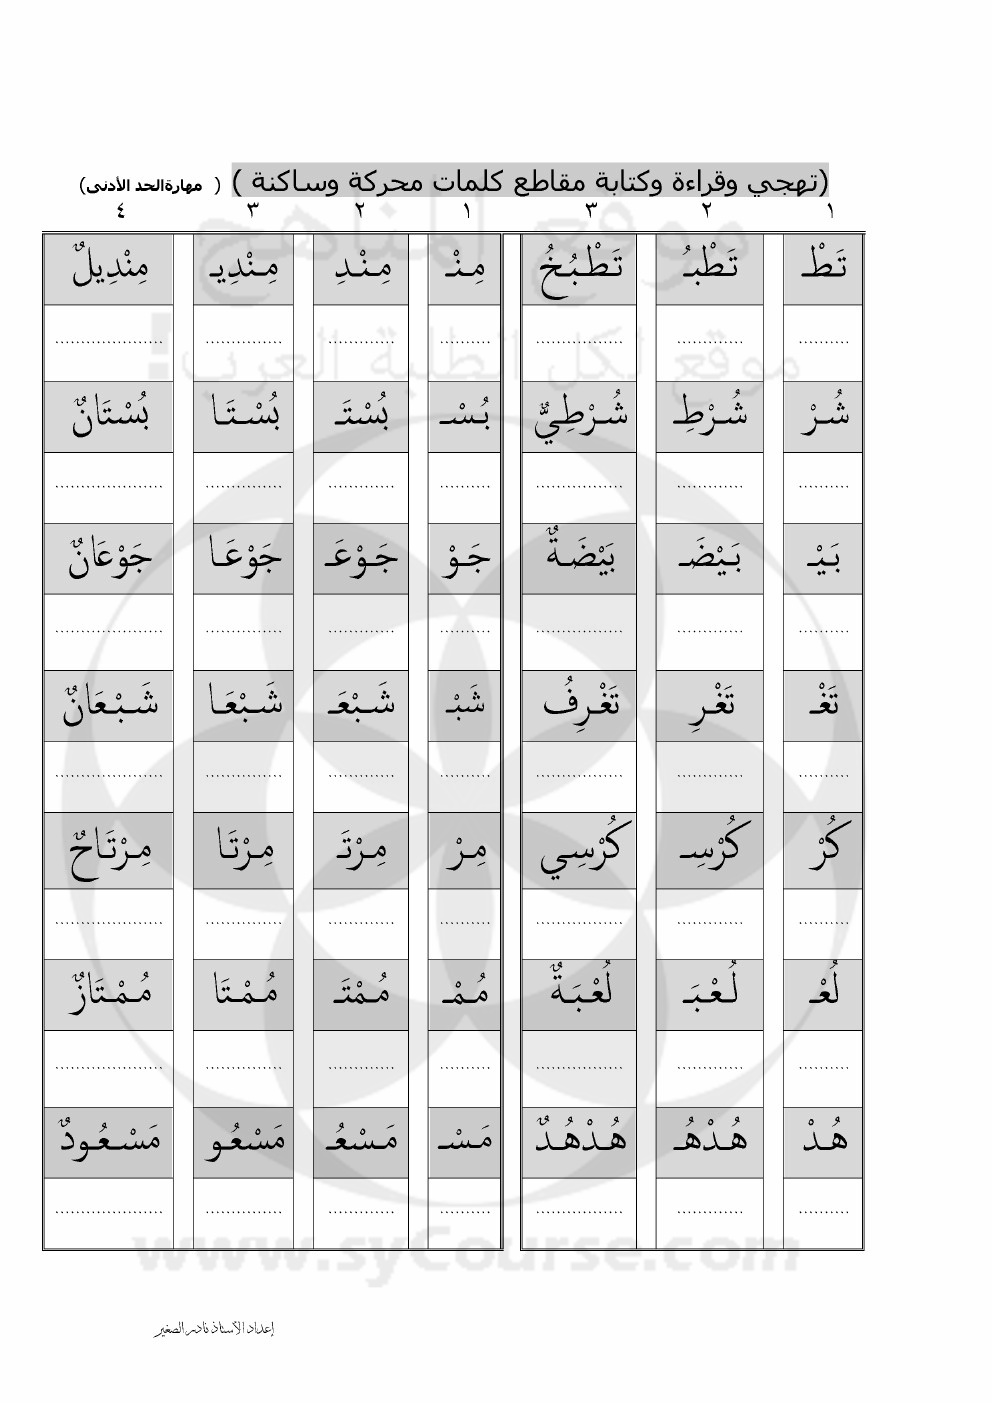 (تهجي وقراءة وكتابة مقاطع كلمات محركة وساكنة ) ( مهارةالحد الأدنى)
١ ٢ ٣ ١ ٢ ٣ ٤
تَطْـ تَطْبُـ تَطْبُخُ مِنْـ مِنْدِ مِنْدِيـ مِنْدِيلٌ
.......... ............. ................. .......... ............. ............... .....................
شُرْ شُرْطِـ شُرْطِيٌّ بُسْـ بُسْتَـ بُسْتَا بُسْتَانٌ
.......... ............. ................. .......... ............. ............... .....................
بَيْـ بَيْضَـ بَيْضَةٌ جَوْ جَوْعَـ جَوْعَا جَوْعَانٌ
.......... ............. ................. .......... ............. ............... .....................
تَغْـ تَغْرِ تَغْرِفُ شَبْـ شَبْعَـ شَبْعَا شَبْعَانٌ
.......... ............. ................. .......... ............. ............... .....................
كُرْ كُرْسِـ كُرْسِي مِرْ مِرْتَـ مِرْتَا مِرْتَاحٌ
.......... ............. ................. .......... ............. ............... .....................
لُعْـ لُعْبَـ لُعْبَةٌ مُمْـ مُمْتَـ مُمْتَا مُمْتَازٌ
.......... ............. ................. .......... ............. ............... .....................
هُدْ هُدْهُـ هُدْهُدٌ مَسْـ مَسْعُـ مَسْعُو مَسْعُودٌ
.......... ............. ................. .......... ............. ............... .....................
موقع المناهج
موقع لكل الطلبة العرب!
www.syCourse.com
إعداد الأستاذ نادر الصغير